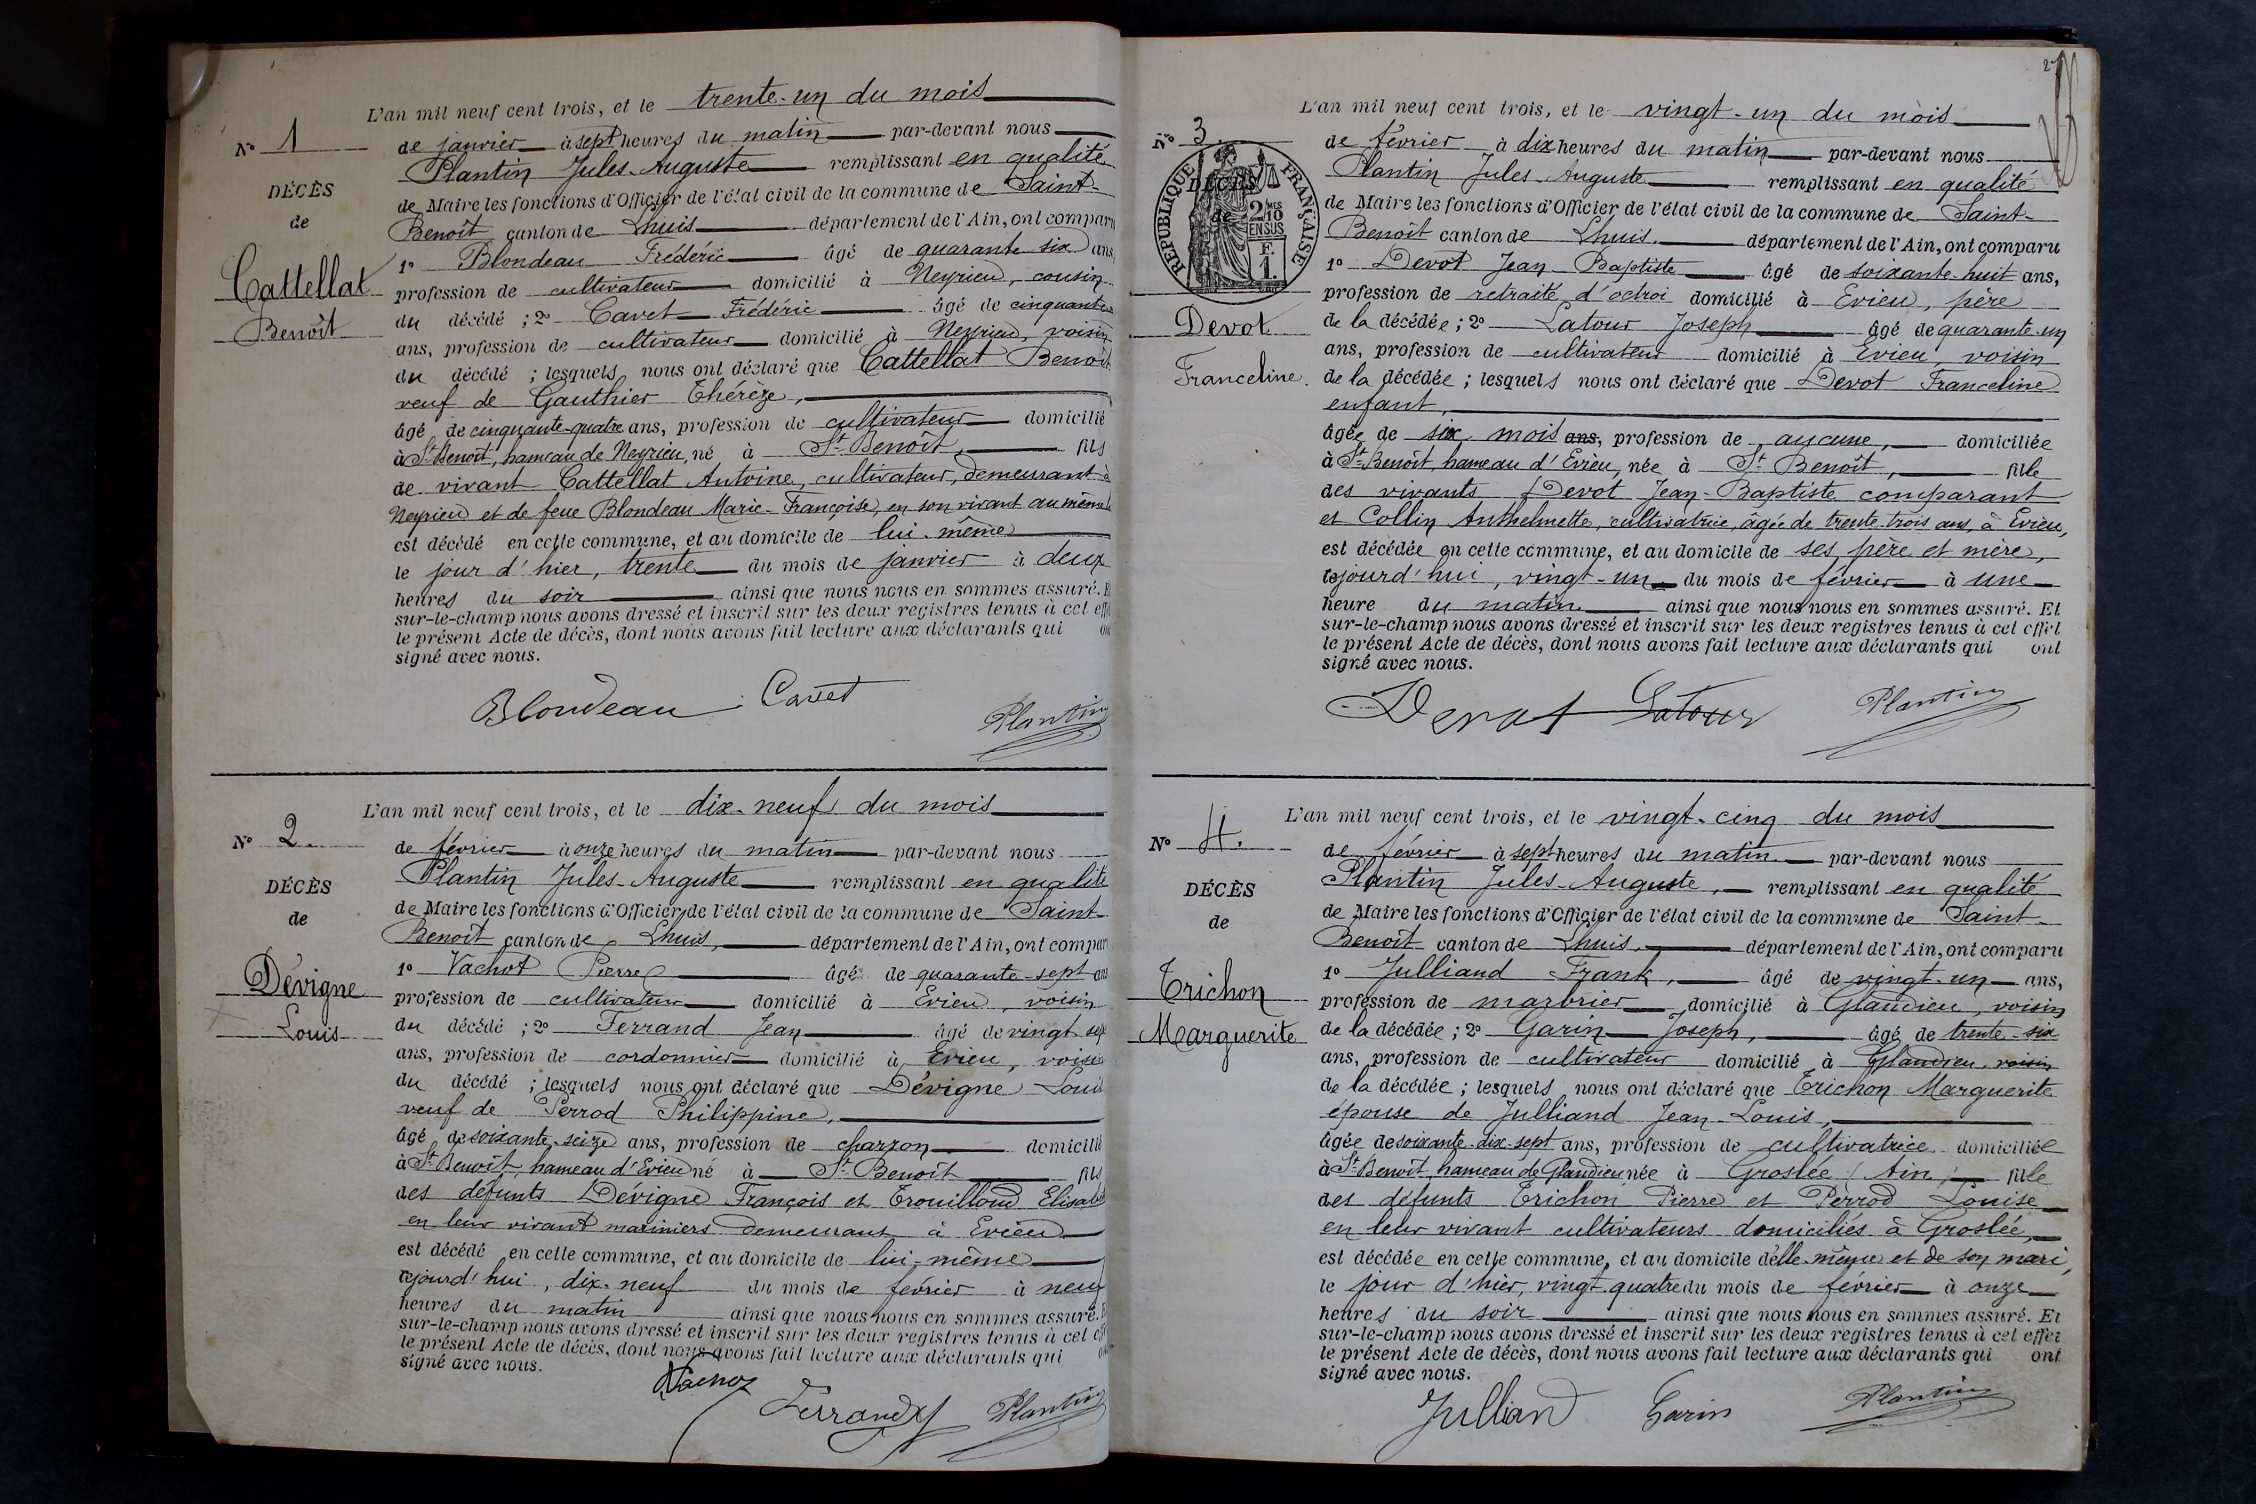 L'an mil neuf cent trois, et le trente-un du mois
N° 1
de janvier à sept heures du matin par-devant nous
Plantin Jules-Auguste remplissant en qualité
DÉCÈS
de Maire les fonctions d'Officier de l'état civil de la commune de Saint-
de
Benoît canton de Lhuis département de l'Ain, ont comparu
1° Blondeau Frédéric âgé de quarante six ans,
Cattellat
profession de cultivateur domicilié à Neyrieu, cousin
Benoît
du décédé ; 2° Cavet Frédéric âgé de cinquante
ans, profession de cultivateur domicilié à Neyrieu, voisin
du décédé ; lesquels nous ont déclaré que Cattellat Benoît
veuf de Gauthier Thérèze,
âgé de cinquante-quatre ans, profession de cultivateur domicilié
à St Benoît, hameau de Neyrieu, né à St Benoît, fils
de vivant Cattellat Antoine, cultivateur, demeurant à
Neyrieu et de feue Blondeau Marie-Françoise, en son vivant au même
est décédé en cette commune, et au domicile de lui-même
le jour d'hier, trente du mois de janvier à deux
heures du soir ainsi que nous nous en sommes assuré. E
sur-le-champ nous avons dressé et inscrit sur les deux registres tenus à cet eff
le présent Acte de décès, dont nous avons fait lecture aux déclarants qui on
signé avec nous.
Blondeau Cavet Plantin
L'an mil neuf cent trois, et le dix-neuf du mois
N° 2
de février à onze heures du matin par-devant nous
Plantin Jules-Auguste remplissant en qualité
DÉCÈS
de Maire les fonctions d'Officier de l'état civil de la commune de Saint-
de
Benoît canton de Lhuis, département de l'Ain, ont compar
1° Vachot Pierre âgé de quarante-sept ans
Dévigne
profession de cultivateur domicilié à Evieu, voisin
Louis
du décédé ; 2° Ferrand Jean âgé de vingt sept
ans, profession de cordonnier domicilié à Evieu, voisin
du décédé ; lesquels nous ont déclaré que Dévigne Louis
veuf de Perrod Philippine,
âgé de soixante-seize ans, profession de charron domicilié
à St Benoît, hameau d'Evieu né à St Benoît fils
des défunts Dévigne François et Trouilloud Elisab
en leur vivant mariniers demeurant à Evieu
est décédé en cette commune, et au domicile de lui-même
cejourd'hui, dix-neuf du mois de février à neuf
heures du matin ainsi que nous nous en sommes assuré. E
sur-le-champ nous avons dressé et inscrit sur les deux registres tenus à cet eff
le présent Acte de décès, dont nous avons fait lecture aux déclarants qui on
signé avec nous.
Vachot Ferrand Plantin
2
L'an mil neuf cent trois, et le vingt-un du mois
N° 3
de février à dix heures du matin par-devant nous
Plantin Jules-Auguste remplissant en qualité
RÉPUBLIQUE FRANÇAISE
DÉCÈS
2/10 MES EN SUS
F. 1.
de Maire les fonctions d'Officier de l'état civil de la commune de Saint-
de
Benoît canton de Lhuis. département de l'Ain, ont comparu
1° Devot Jean-Baptiste âgé de soixante-huit ans,
profession de retraité d'octroi domicilié à Evieu, père
Devot
de la décédée ; 2° Latour Joseph âgé de quarante-un
ans, profession de cultivateur domicilié à Evieu, voisin
Franceline.
de la décédée ; lesquels nous ont déclaré que Devot Franceline
enfant,
âgée de six mois ans, profession de aucune, domiciliée
à St Benoît, hameau d'Evieu, née à St Benoît, fille
des vivants Devot Jean-Baptiste comparant
et Collin Anthelmette, cultivatrice, âgée de trente trois ans, à Evieu,
est décédée en cette commune, et au domicile de ses père et mère,
cejourd'hui, vingt-un du mois de février à une
heure du matin ainsi que nous nous en sommes assuré. Et
sur-le-champ nous avons dressé et inscrit sur les deux registres tenus à cet effet
le présent Acte de décès, dont nous avons fait lecture aux déclarants qui ont
signé avec nous.
Devot Latour Plantin
L'an mil neuf cent trois, et le vingt-cinq du mois
N° 4.
de février à sept heures du matin par-devant nous
Plantin Jules-Auguste, remplissant en qualité
DÉCÈS
de Maire les fonctions d'Officier de l'état civil de la commune de Saint-
de
Benoît canton de Lhuis, département de l'Ain, ont comparu
1° Julliand Frank, âgé de vingt-un ans,
Trichon
profession de marbrier domicilié à Glandieu, voisin
Marguerite
de la décédée ; 2° Garin Joseph, âgé de trente-six
ans, profession de cultivateur domicilié à Glandieu, voisin
de la décédée ; lesquels nous ont déclaré que Trichon Marguerite
épouse de Julliand Jean-Louis,
âgée de soixante-dix-sept ans, profession de cultivatrice domiciliée
à St Benoît, hameau de Glandieu née à Groslée (Ain) fille
des défunts Trichon Pierre et Perrod Louise
en leur vivant cultivateurs domiciliés à Groslée,
est décédée en cette commune, et au domicile d'elle-même et de son mari,
le jour d'hier, vingt-quatre du mois de février à onze
heures du soir ainsi que nous nous en sommes assuré. Et
sur-le-champ nous avons dressé et inscrit sur les deux registres tenus à cet effet
le présent Acte de décès, dont nous avons fait lecture aux déclarants qui ont
signé avec nous.
Jullian Garin Plantin